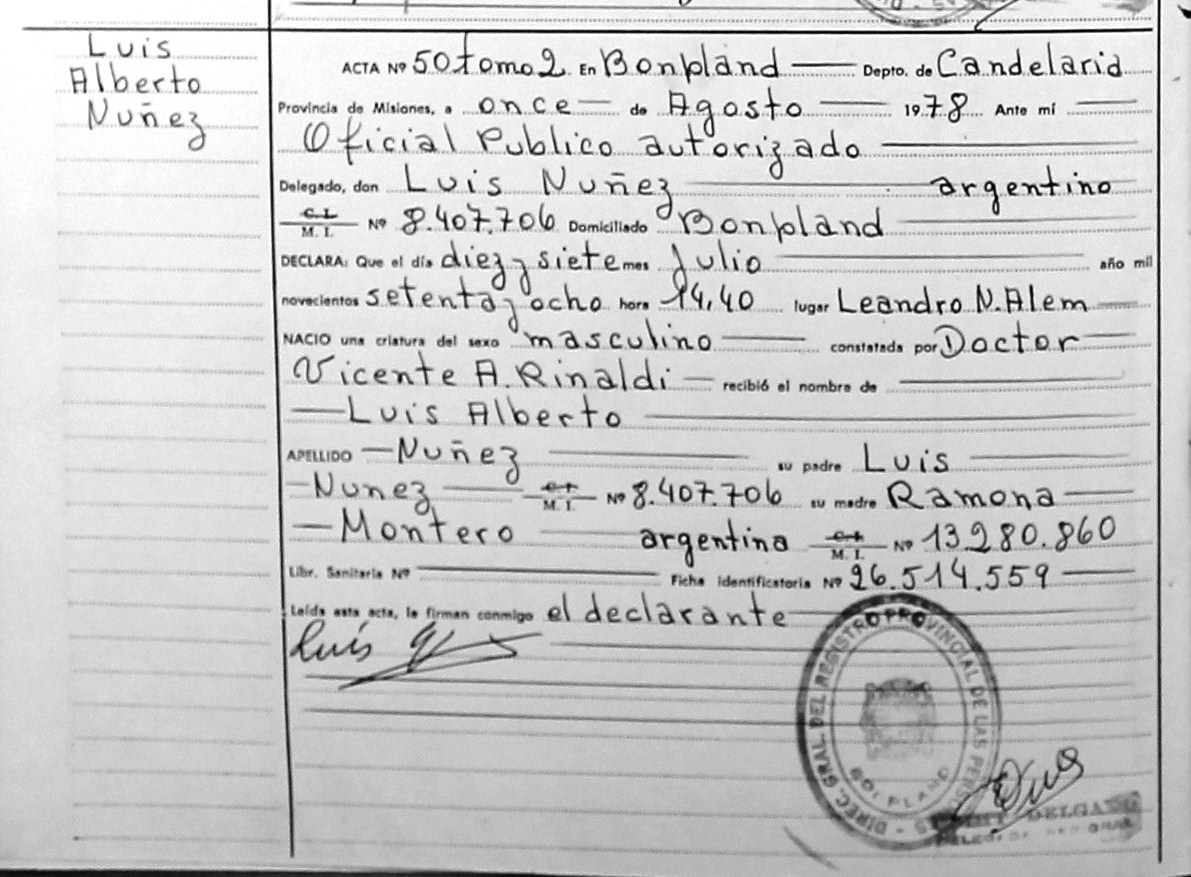 Luis
Alberto
Nuñez
ACTA Nº 50 tomo 2. En Bonpland Depto. de Candelaria
Provincia de Misiones, a once de Agosto 1978 Ante mí
Oficial Publico autorizado
Delegado, don Luis Nuñez argentino
C.I. M. I. Nº 8.407.706 Domiciliado Bonpland
DECLARA: Que el día diez y siete mes Julio año mil
novecientos setenta y ocho hora 14,40 lugar Leandro N. Alem
NACIO una criatura del sexo masculino constatada por Doctor
Vicente A. Rinaldi recibió el nombre de
Luis Alberto
APELLIDO Nuñez su padre Luis
Nunez C.I. M. I. Nº 8.407.706 su madre Ramona
Montero argentina C.I. M. I. Nº 13.280.860
Libr. Sanitaria Nº Ficha identificatoria Nº 26.514.559
Leída esta acta, la firman conmigo el declarante
Luis
DIREC. GRAL. DEL REGISTRO PROVINCIAL DE LAS PERSONAS
BONPLAND
DELGADO